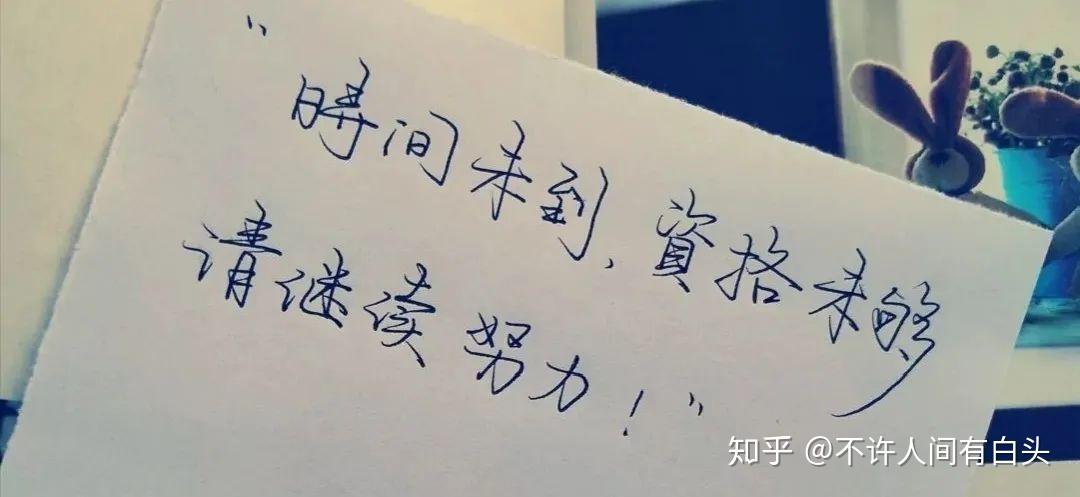 “時间未到,資格未够
请继续努力!”
知乎 @不许人间有白头